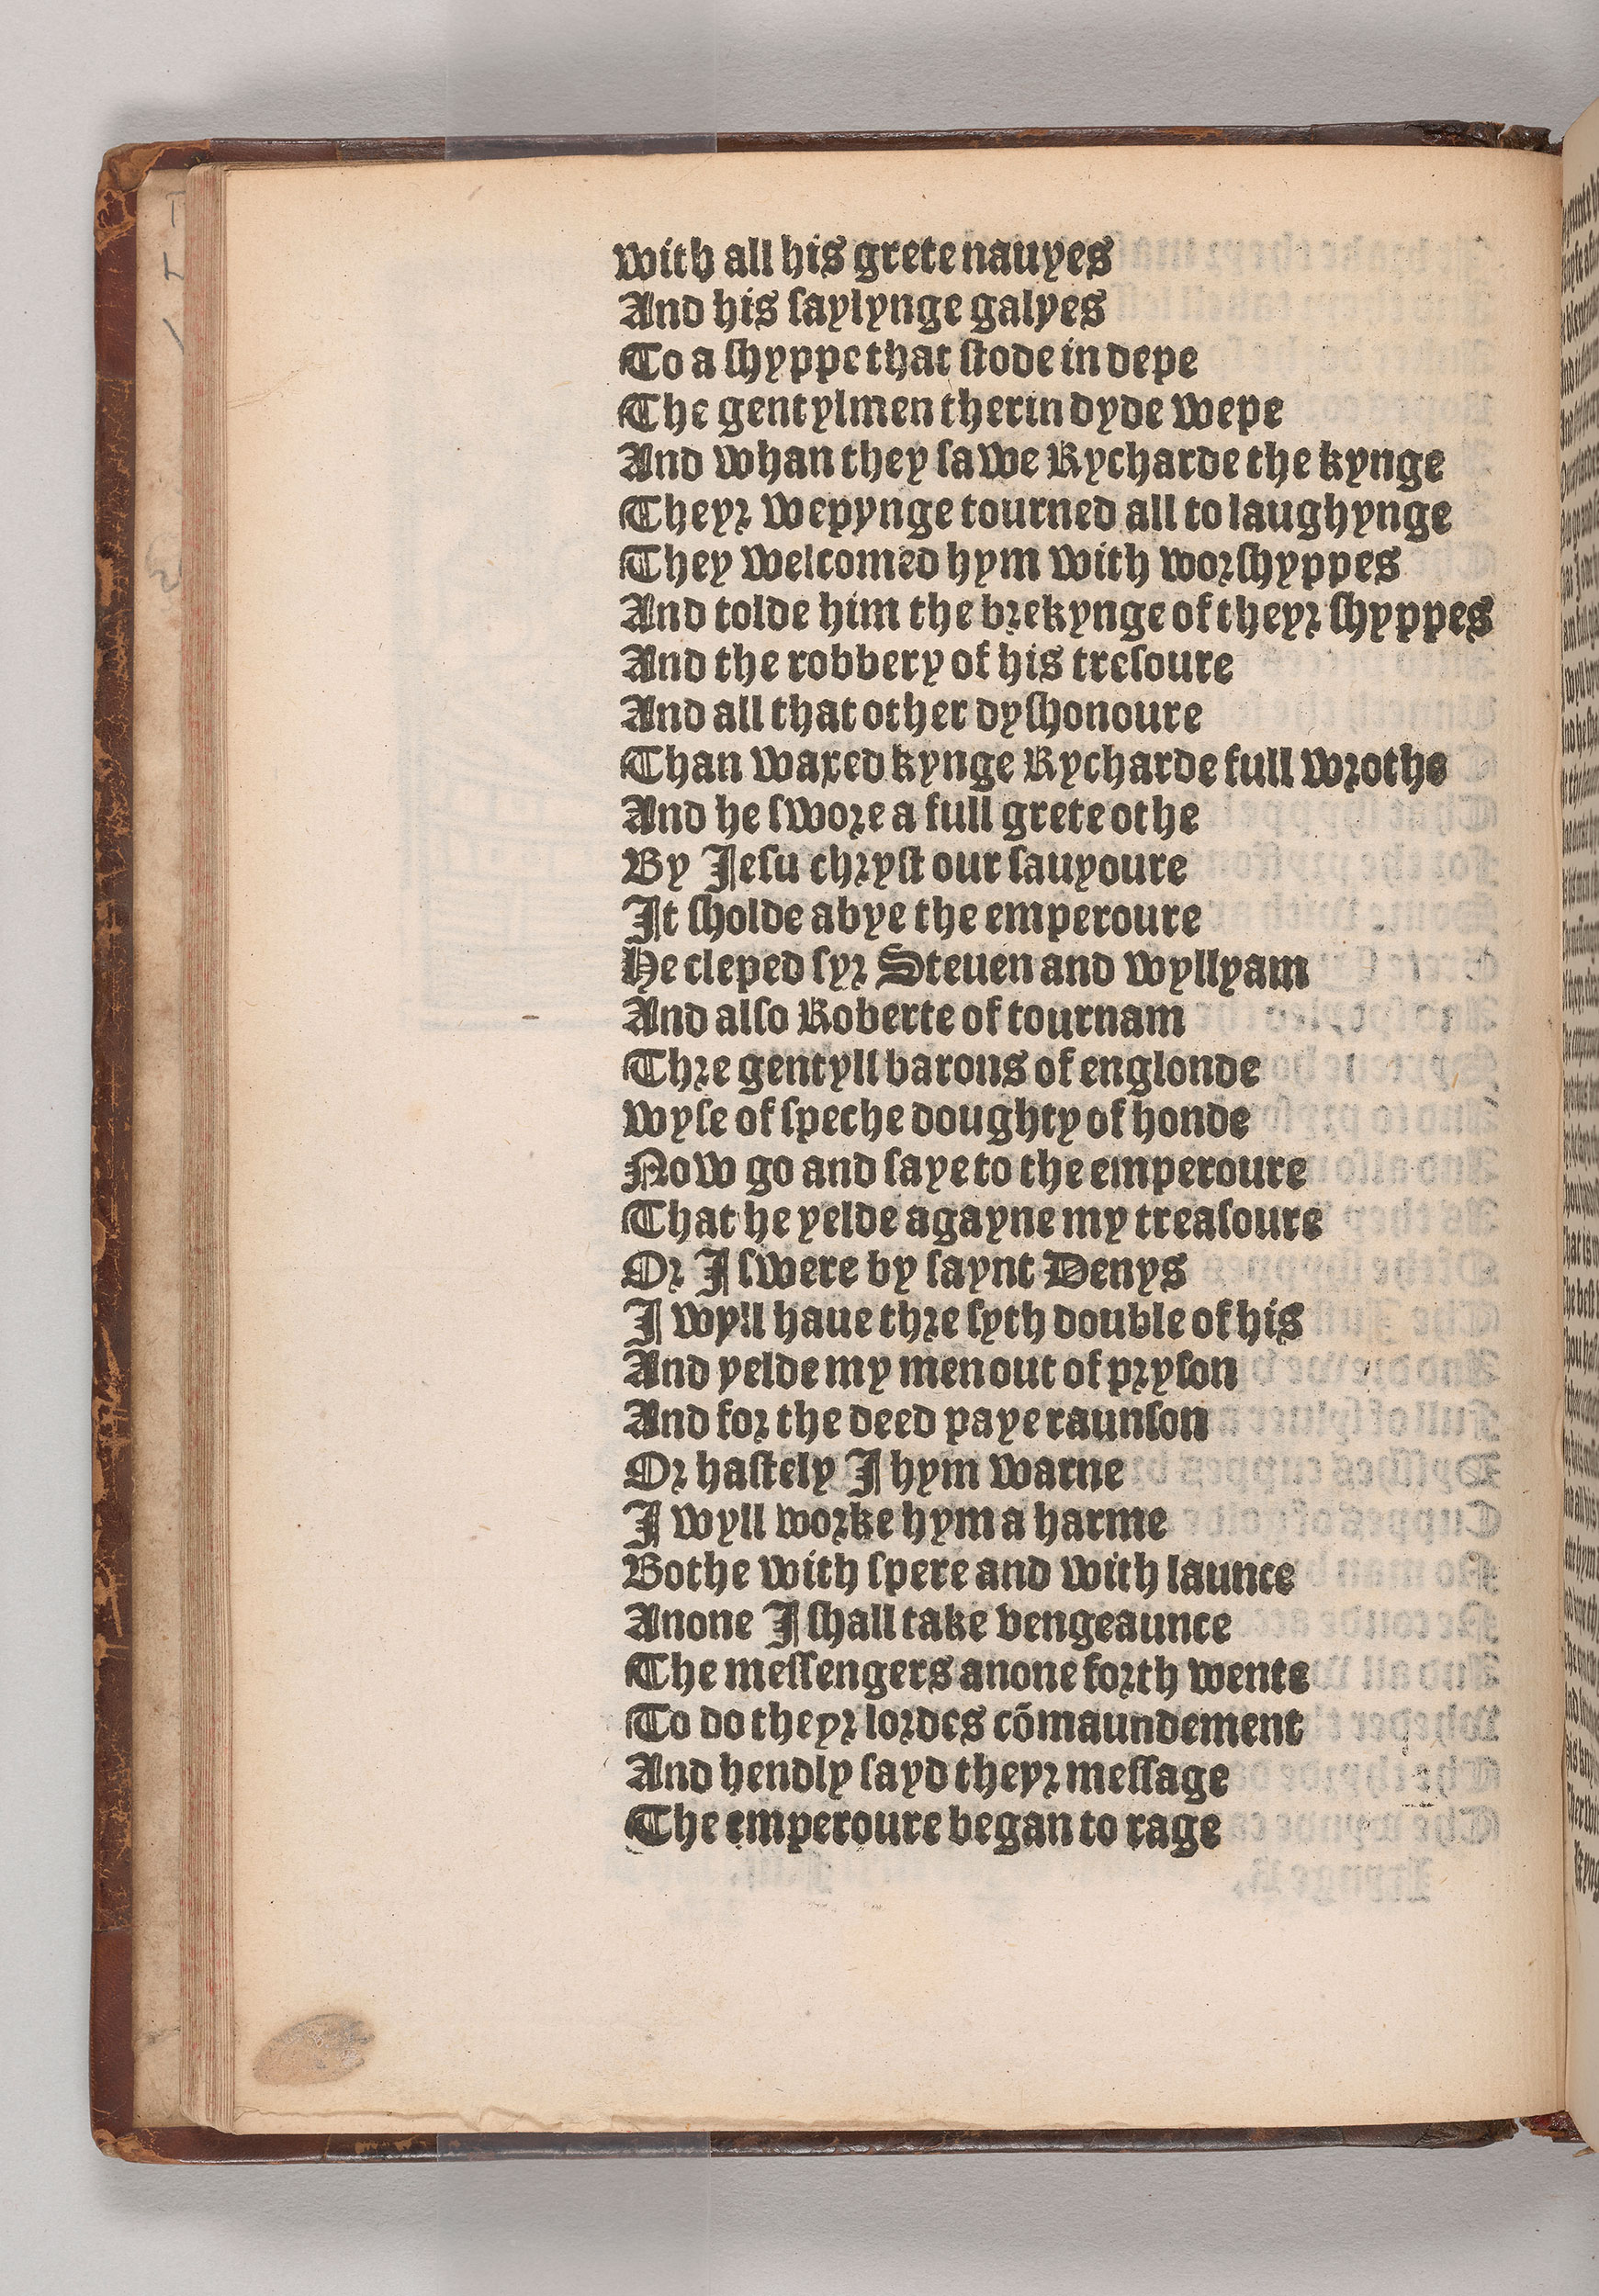 With all his grete nauyes
And his saylynge galyes
To a shyppe that stode in depe
The gentylmen therin dyde wepe
And whan they sawe Rycharde the kynge
Theyr wepynge tourned all to laughynge
They welcomed hym with worshyppes
And tolde him the brekynge of theyr shyppes
And the robbery of his tresoure
And all that other dyshonoure
Than waxed kynge Rycharde full wrothe
And he swore a full grete othe
By Jesu chryst our sauyoure
It sholde abye the emperoure
He cleped syr Steuen and wyllyam
And also Roberte of tournam
Thre gentyll barons of englonde
wyse of speche doughty of honde
Now go and saye to the emperoure
That he yelde agayne my treasoure
Or I swere by saynt Denys
I wyll haue thre syth double of his
And yelde my men out of pryson
And for the deed paye raunson
Or hastely I hym warne
I wyll worke hym a harme
Bothe with spere and with launce
Anone I shall take vengeaunce
The messengers anone forth wente
To do theyr lordes cōmaundement
And hendly sayd theyr message
The emperoure began to rage